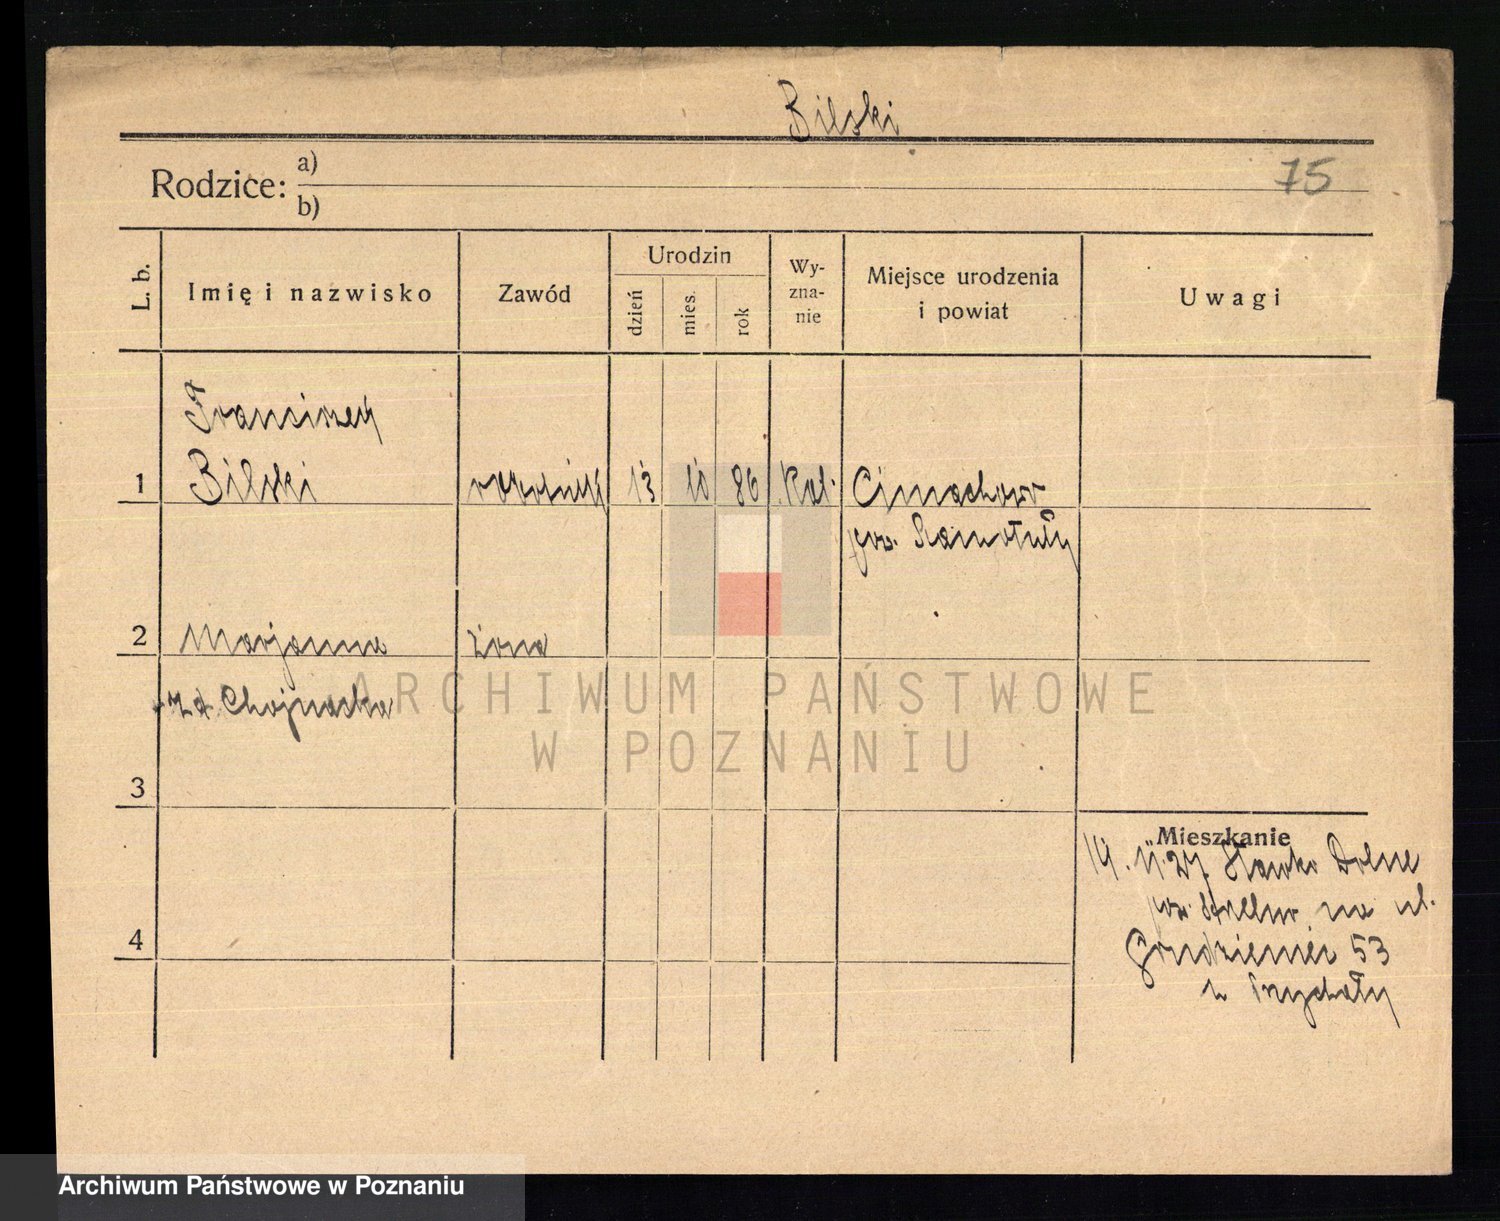 Bilski
75
Rodzice: a)
b)
L. b.
Imię i nazwisko
Zawód
Urodzin
dzień
mies.
rok
Wy-
zna-
nie
Miejsce urodzenia
i powiat
Uwagi
Franciszek
1 Bilski robotnik 13 10 86 Kat.
pow. Szamotuły
2 Marjanna żona
z d. Chojnacka
3
4
Mieszkanie
Dolne
na ul.
53
z
ARCHIWUM PAŃSTWOWE
W POZNANIU
Archiwum Państwowe w Poznaniu